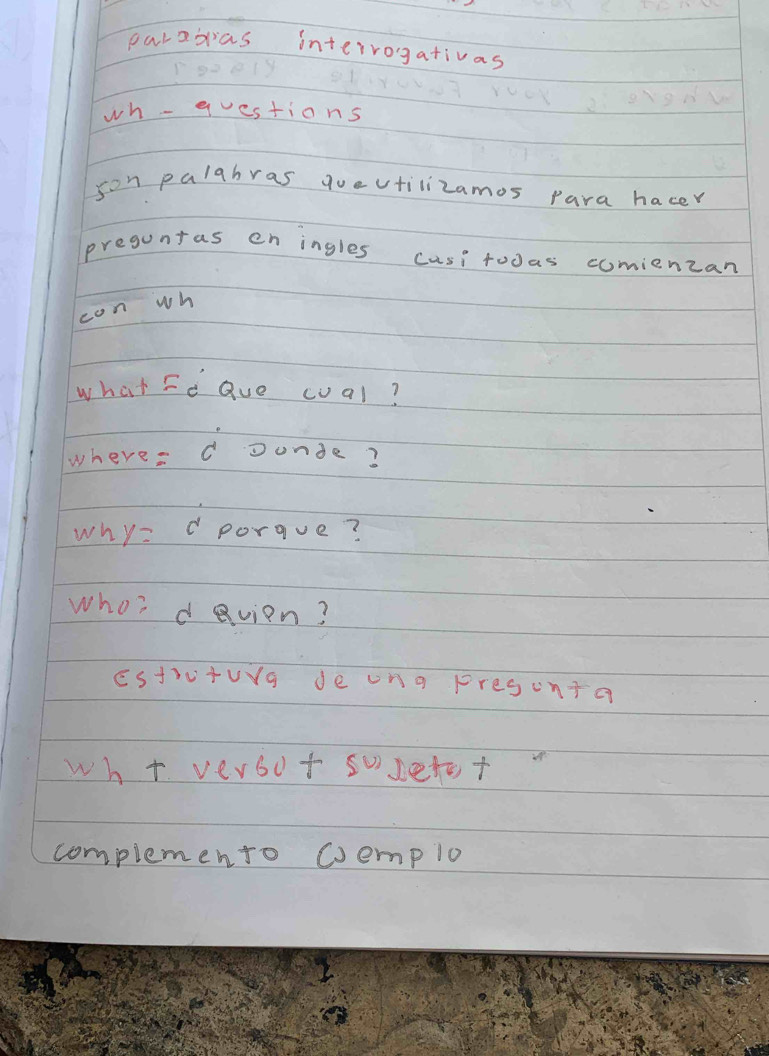 palabras interrogativas
wh - questions
son palabras que utilizamos para hacer
preguntas en ingles casi todas comienzan
con wh
what = ¿ Que cual ?
where = ¿ Donde ?
why = ¿ porque ?
who = ¿ Quien ?
Estrutura de una Pregunta
wh + verbo + sujeto +
complemento ejemplo